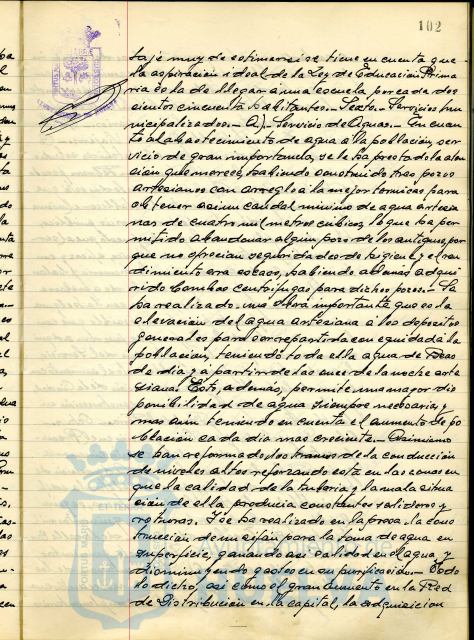 102
taje muy de estimar si se tiene en cuenta que
la aspiración ideal de la Ley de Educación Prima
ria es la de llegar a una escuela por cada dos
cientos cincuenta habitantes.- Sexto.- Servicios mu
nicipalizados.- A).- Servicio de Aguas.- En cuan
to al abastecimiento de agua a la población, ser
vicio de gran importancia, se le ha prestado la aten
ción que merece, habiendo construido tres pozos
artesianos con arreglo a la mejor técnica para
obtener así un caudal mínimo de agua artesia
na de cuatro mil metros cúbicos, lo que ha per
mitido abandonar algún pozo de los antiguos, por
que no ofrecían seguridades de higiene y el ren
dimiento era escaso, habiendo además adqui
rido bombas centrífugas para dichos pozos.- Se
ha realizado una obra importante que es la
elevación del agua artesiana a los depósitos
generales para ser repartida con equidad a la
población, teniendo toda ella agua de
de día y a partir de las once de la noche arte
siana. Esto, además, permite una mayor dis
ponibilidad de agua siempre necesaria y
más aún teniendo en cuenta el aumento de po
blación cada día más creciente.- Asimismo
se han reformado los tramos de la conducción
de niveles altos reforzando ésta en las zonas en
que la calidad de la tubería y la mala situa
ción de ella producía constantes salideros y
roturas. Y se ha realizado en la presa la cons
trucción de un sifón para la toma de agua en
superficie, ganando así calidad en el agua, y
disminuyendo gastos en su purificación.- Todo
lo dicho, así como el gran aumento en la Red
de Distribución en la capital, la adquisición